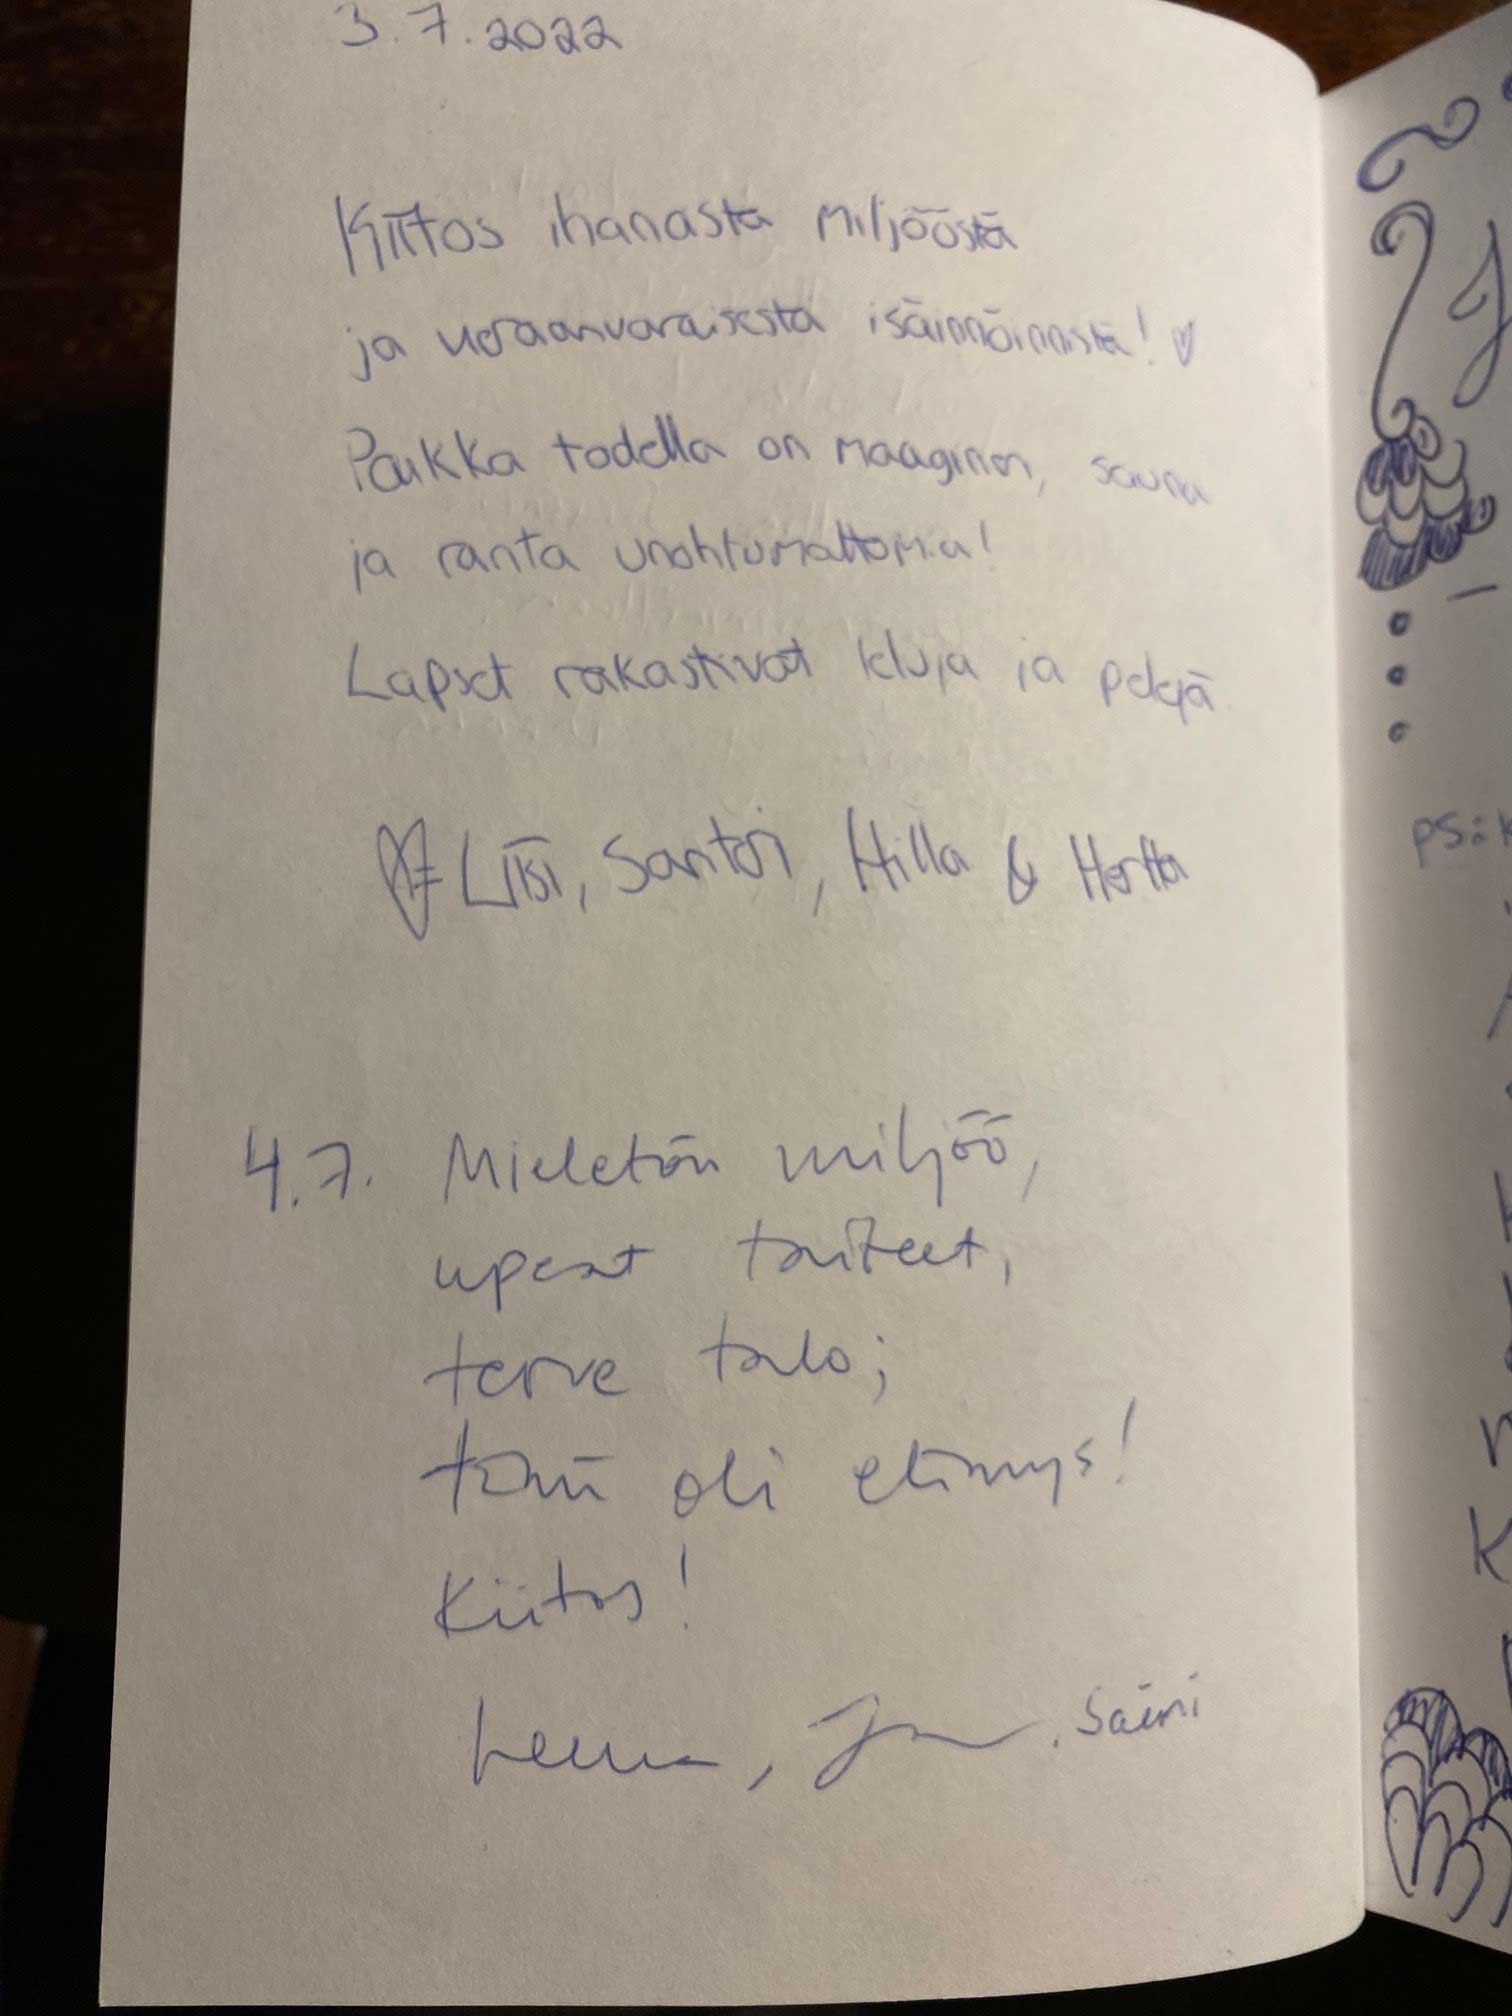 3.7.2022
Kiitos ihanasta miljööstä
ja vieraanvaraisesta isännöinnistä! ♡
Paikka todella on maaginen, sauna
ja ranta unohtumattomia!
Lapset rakastivat leluja ja pelejä
Liisi, Santeri, Hilla & Hertta
4.7. Mieletön miljöö,
upeat taiteet,
terve talo;
tämä oli elämys!
Kiitos!
, Saimi
ps: